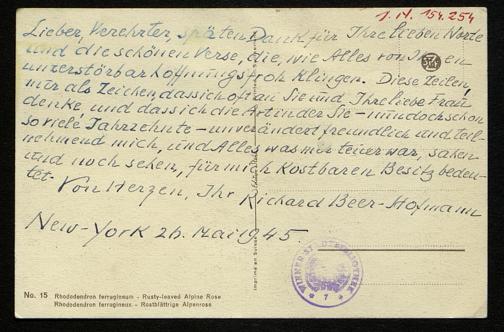 1. IV. 154.254
Lieber, Verehrter, späten Dank für Ihre lieben Worte
und die schönen Verse, die, wie Alles von Ihnen
unzerstörbar hoffnungsfroh klingen. Diese Zeilen,
mir als Zeichen dass ich oft an Sie und Ihre liebe Frau
denke und dass ich die Art in der Sie – nun doch schon
so viele Jahrzehnte – unverändert freundlich und teil-
nehmend mich, und Alles was mir teuer war, sahen
und noch sehen, für mich kostbaren Besitz bedeu-
tet. Von Herzen, Ihr Richard Beer-Hofmann
New-York 26. Mai 1945.
No. 15 Rhododendron ferrugineum - Rusty-leaved Alpine Rose
Rhododendron ferrugineux - Rostblättrige Alpenrose
Imprimé en Suisse
WIENER STADTBIBLIOTHEK
* 7 *